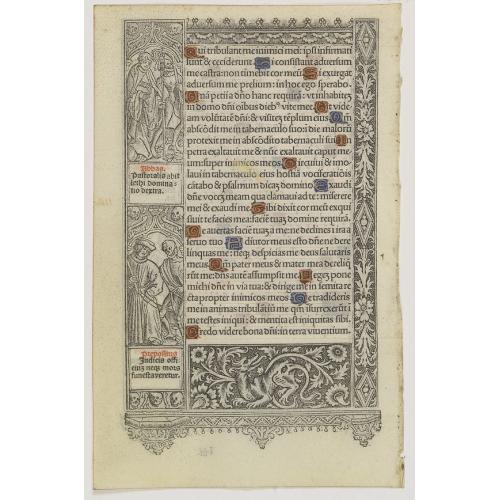 Qui tribulant me inimici mei: ipsi infirmati
sunt & ceciderunt. Si consistant adversum
me castra: non timebit cor meū. Si exurgat
adversum me prelium: in hoc ego sperabo.
Unā petii a dn̄o hanc requirā: ut inhabitē
in domo dn̄i oībus dieb⁹ vite mee. Ut vide
am volūtatē dn̄i: & visitē tēplum eius. Qm̄
abscōdit me in tabernaculo suo: i die malorū
protexit me in abscōdito tabernaculi sui. In
petra exaltauit me & nūc exaltauit caput me
um: super inimicos meos. Circuiui & imo
laui in tabernaculo eius hostiā vociferatiōis
cātabo & psalmum dicaꝫ domino. Exaudi
dn̄e vocēꝫ meam qua clamaui ad te: miserere
mei & exaudi me. Tibi dixit cor meū exqui
siuit te facies mea: faciē tuaꝫ domine requirā.
Ne auertas faciē tuaꝫ a me: ne declines i ira a
seruo tuo. Adiutor meus esto dn̄e ne dere
linquas me: neqꝫ despicias me deus salutaris
meus. Qm̄ pater meus & mater mea dereliq̄
rūt me: dn̄s autē assumpsit me. Legeꝫ pone
michi dn̄e in via tua: & dirige me in semita re
cta propter inimicos meos. Ne tradideris
me in animas tribulātiū me qm̄ insurrexerūt i
me testes iniqui: & mentita est iniquitas sibi.
Credo videre bona dn̄i: in terra viventium.
Abbas.
Pastoralis abit
lethi domina:
tio dextra.
Prepositus
Judicis offi
ciuꝫ neqꝫ mors
funesta veretur.